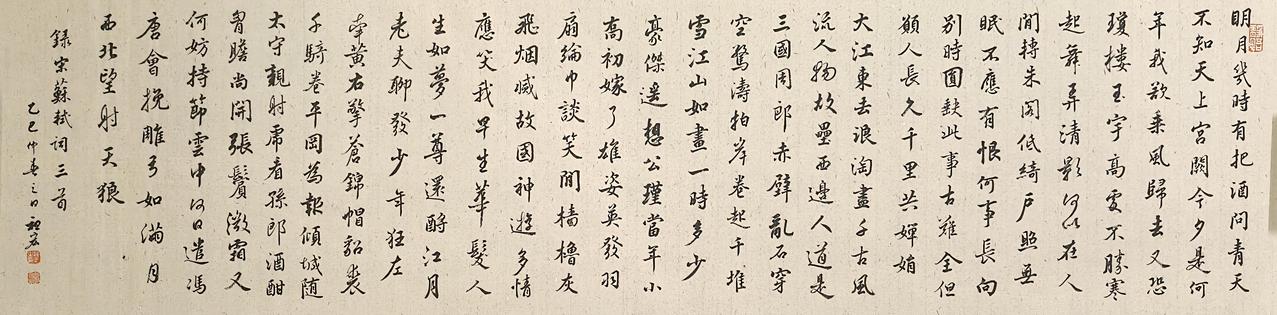 明月幾時有把酒問青天
不知天上宮闕今夕是何
年我欲乘風歸去又恐
瓊樓玉宇高處不勝寒
起舞弄清影何似在人
間轉朱閣低綺戶照無
眠不應有恨何事長向
別時圓缺此事古難全但
願人長久千里共嬋娟
大江東去浪淘盡千古風
流人物故壘西邊人道是
三國周郎赤壁亂石穿
空驚濤拍岸卷起千堆
雪江山如畫一時多少
豪傑遙想公瑾當年小
喬初嫁了雄姿英發羽
扇綸巾談笑間檣櫓灰
飛烟滅故國神遊多情
應笑我早生華髮人
生如夢一尊還酹江月
老夫聊發少年狂左
牽黃右擎蒼錦帽貂裘
千騎卷平岡為報傾城隨
太守親射虎看孫郎酒酣
胷膽尚開張鬢微霜又
何妨持節雲中何日遣馮
唐會挽雕弓如滿月
西北望射天狼
錄宋蘇軾詞三首
乙巳仲春之日